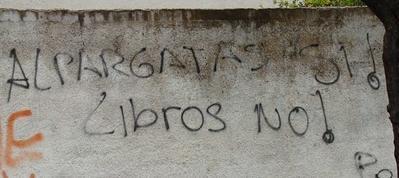 ALPARGATAS SI!
Libros NO!